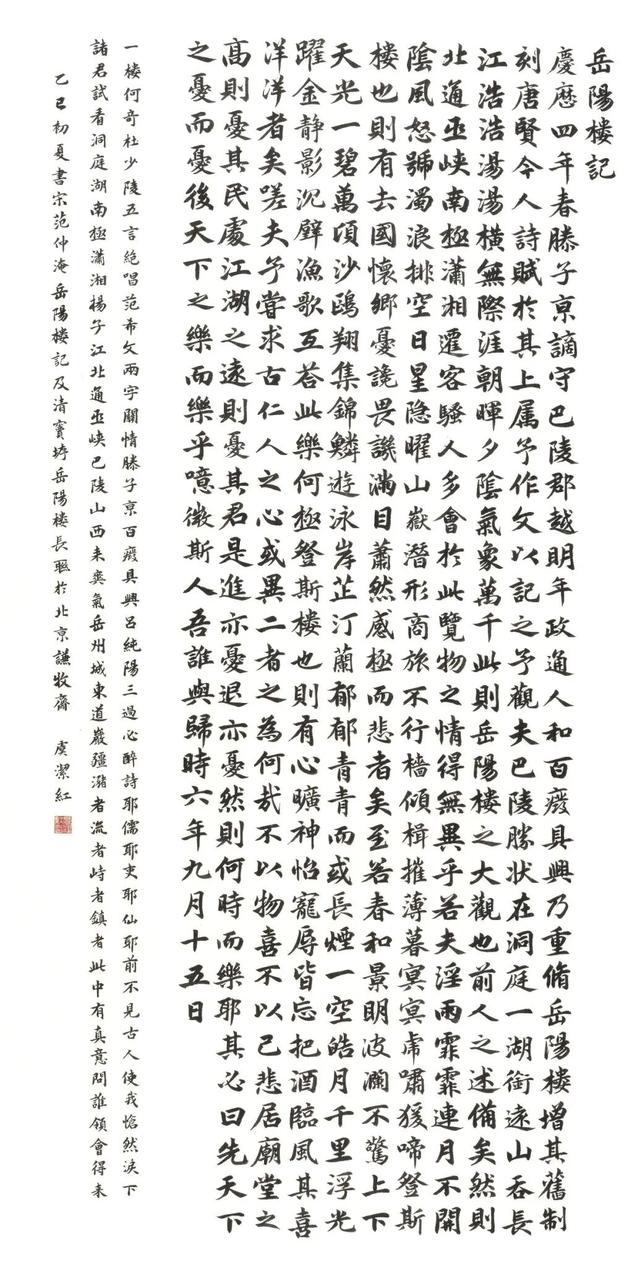 岳陽楼記
慶曆四年春滕子京謫守巴陵郡越明年政通人和百廢具興乃重脩岳陽楼增其舊制
刻唐賢今人詩賦於其上属予作文以記之予觀夫巴陵勝狀在洞庭一湖銜遠山吞長
江浩浩湯湯橫無際涯朝暉夕陰氣象萬千此則岳陽楼之大觀也前人之述備矣然則
北通巫峽南極瀟湘遷客騷人多會於此覽物之情得無異乎若夫淫雨霏霏連月不開
陰風怒號濁浪排空日星隐曜山嶽潛形商旅不行檣傾楫摧薄暮冥冥虎嘯猨啼登斯
楼也則有去國懷鄉憂讒畏譏滿目蕭然感極而悲者矣至若春和景明波瀾不驚上下
天光一碧萬頃沙鷗翔集錦鱗遊泳岸芷汀蘭郁郁青青而或長煙一空皓月千里浮光
躍金静影沉璧漁歌互荅此樂何極登斯楼也則有心曠神怡寵辱皆忘把酒臨風其喜
洋洋者矣嗟夫予嘗求古仁人之心或異二者之為何哉不以物喜不以己悲居廟堂之
高則憂其民處江湖之遠則憂其君是進亦憂退亦憂然則何時而樂耶其必曰先天下
之憂而憂後天下之樂而樂乎噫微斯人吾誰與歸時六年九月十五日
一楼何奇杜少陵五言絶唱范希文兩字關情滕子京百廢具興呂純陽三過心醉詩耶儒耶吏耶仙耶前不見古人使我愴然淚下
諸君試看洞庭湖南極瀟湘楊子江北通巫峽巴陵山西来爽氣岳州城東道巖疆潴者流者峙者鎮者此中有真意問誰領會得来
乙巳初夏書宋范仲淹岳陽楼記及清竇垿岳陽楼長聯於北京謙牧齋 虞潔紅